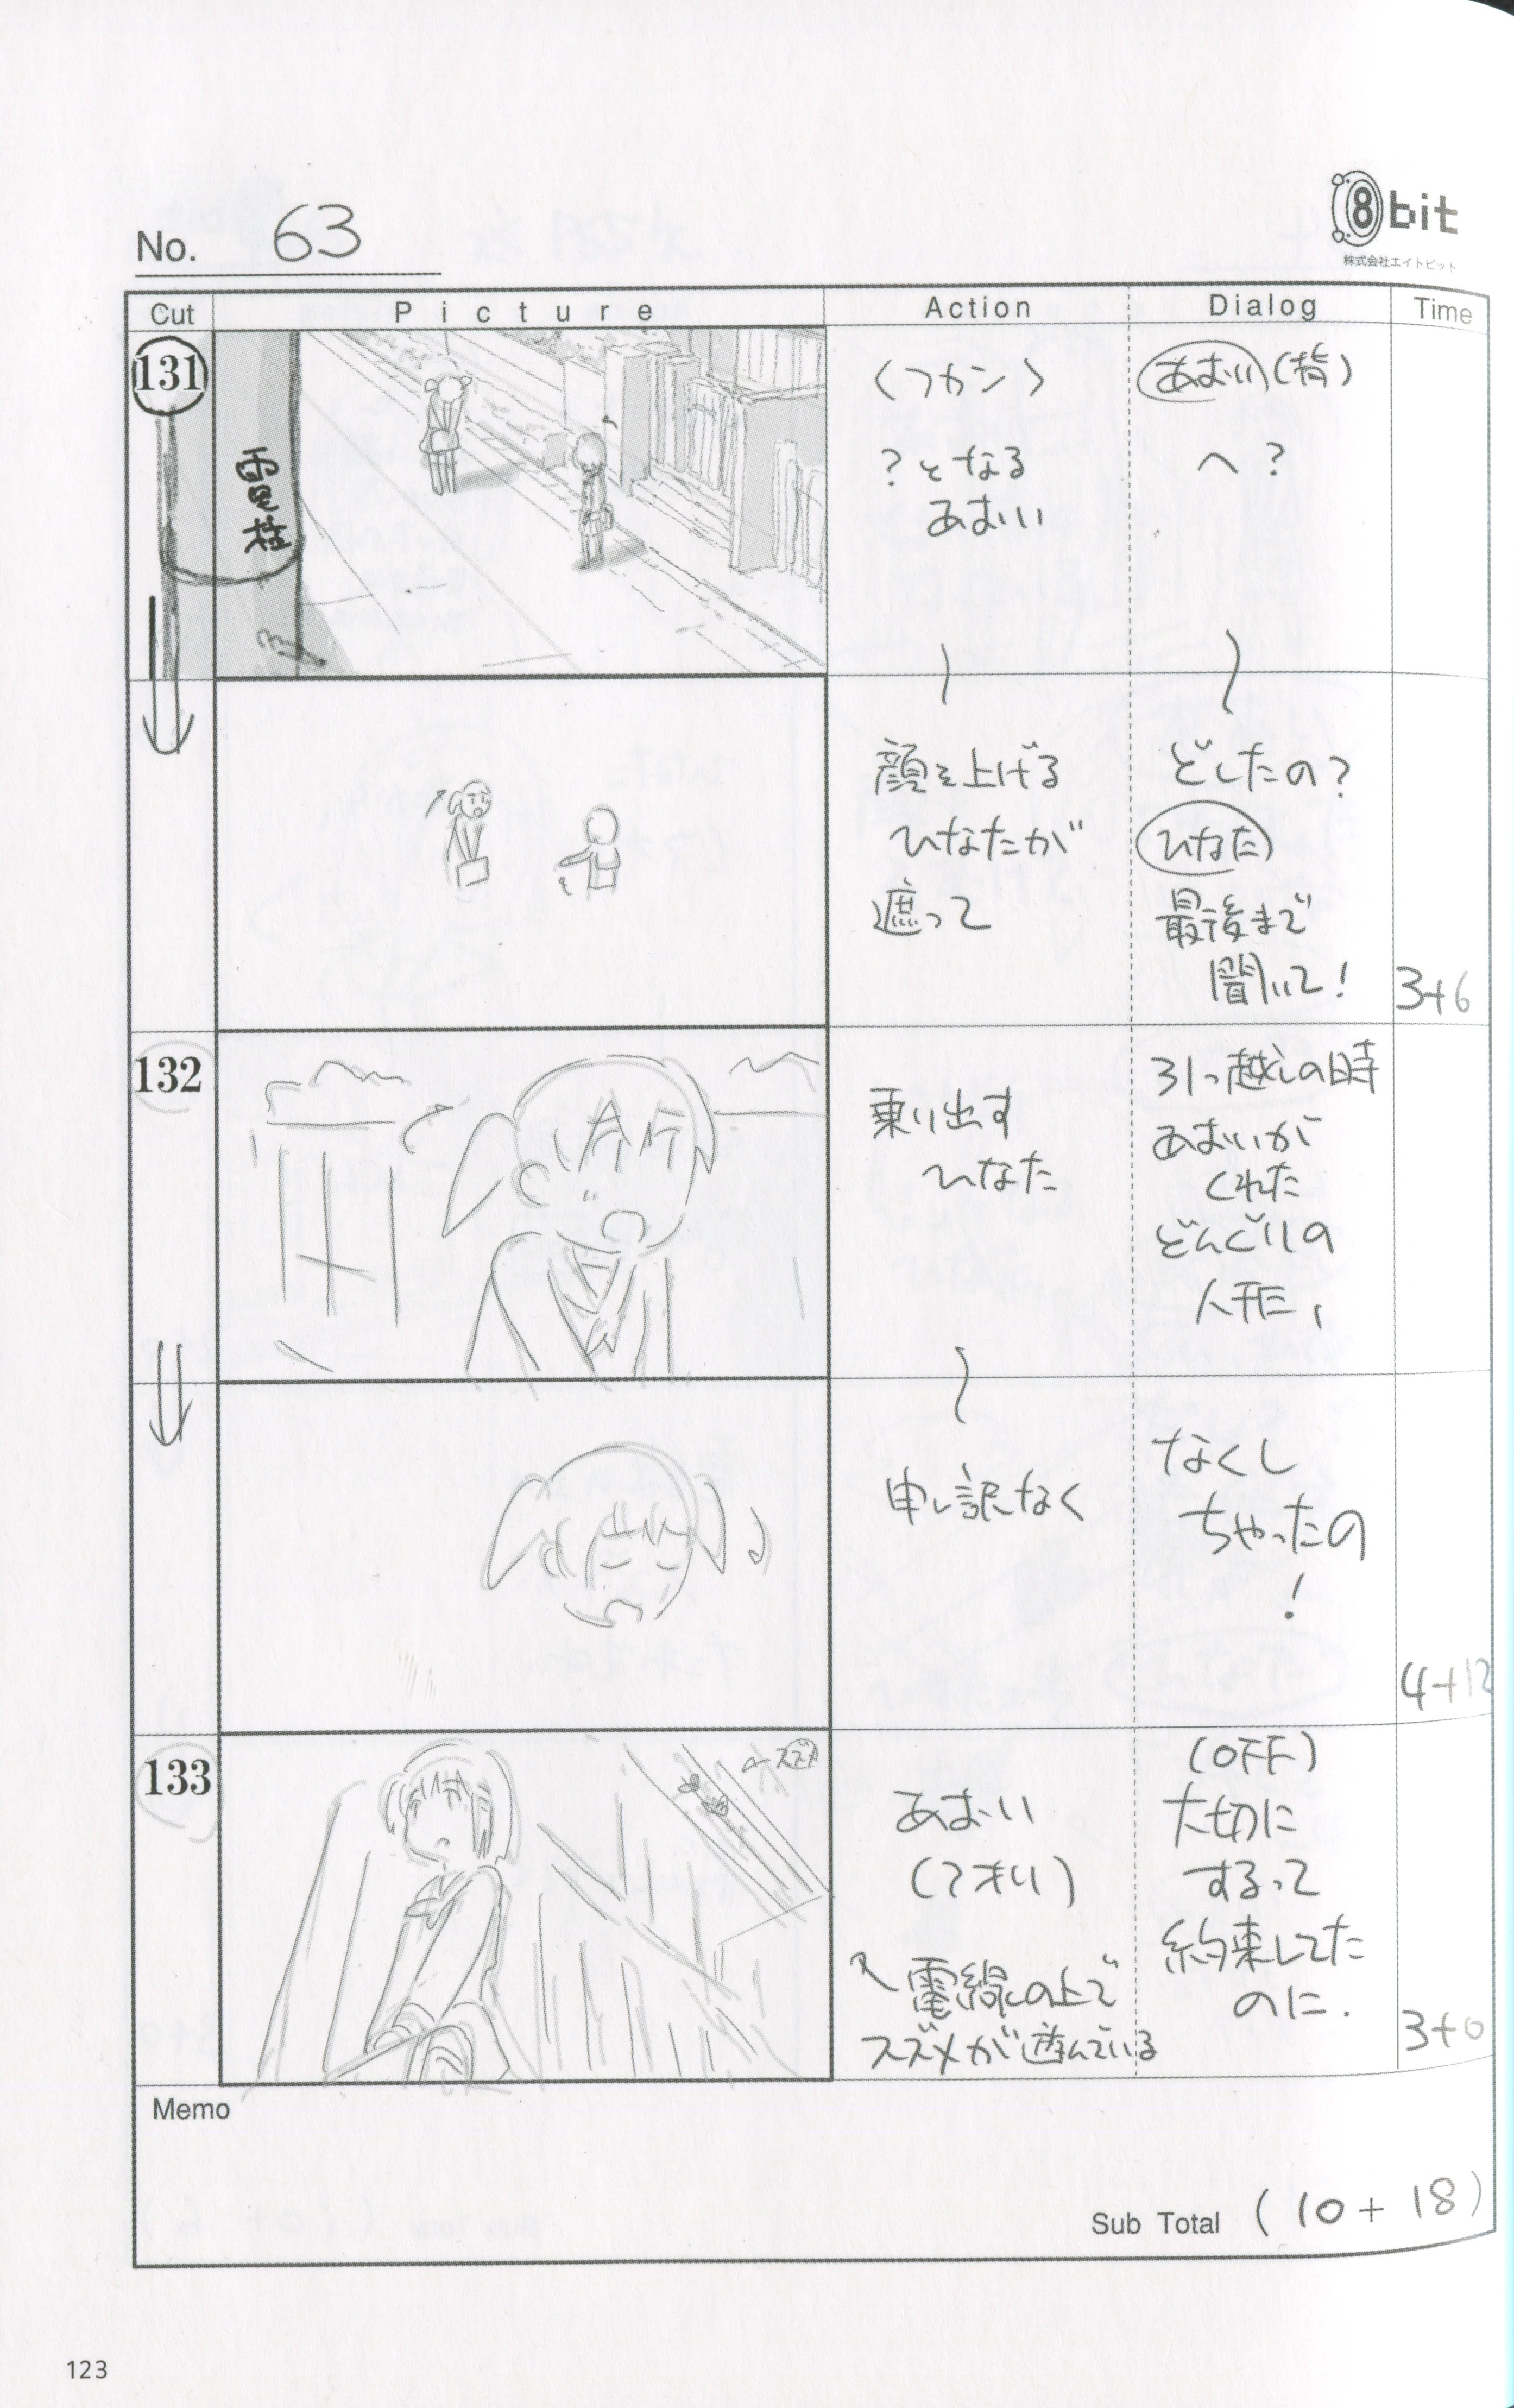 8bit
株式会社エイトビット
No. 63
Cut Picture Action Dialog Time
131
電柱
<フカン>
?となる
あおい
あおい
へ?
顔を上げる
ひなたが
遮って
どしたの?
ひなた
最後まで
聞いて!
3+6
132
乗り出す
ひなた
引っ越しの時
あおいが
くれた
どんぐりの
人形、
申し訳なく
なくし
ちゃったの
!
4+12
133
スズメ
あおい
(アオリ)
電線の上で
スズメが遊んでいる
(OFF)
大切に
するって
約束してた
のに.
3+0
Memo
Sub Total (10+18)
123